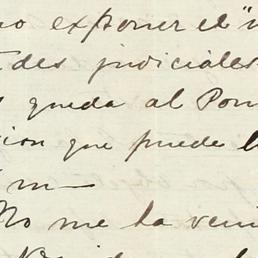 no exponer el "
des judiciales
queda al Pon
cion que puede
m—
No me ha veni